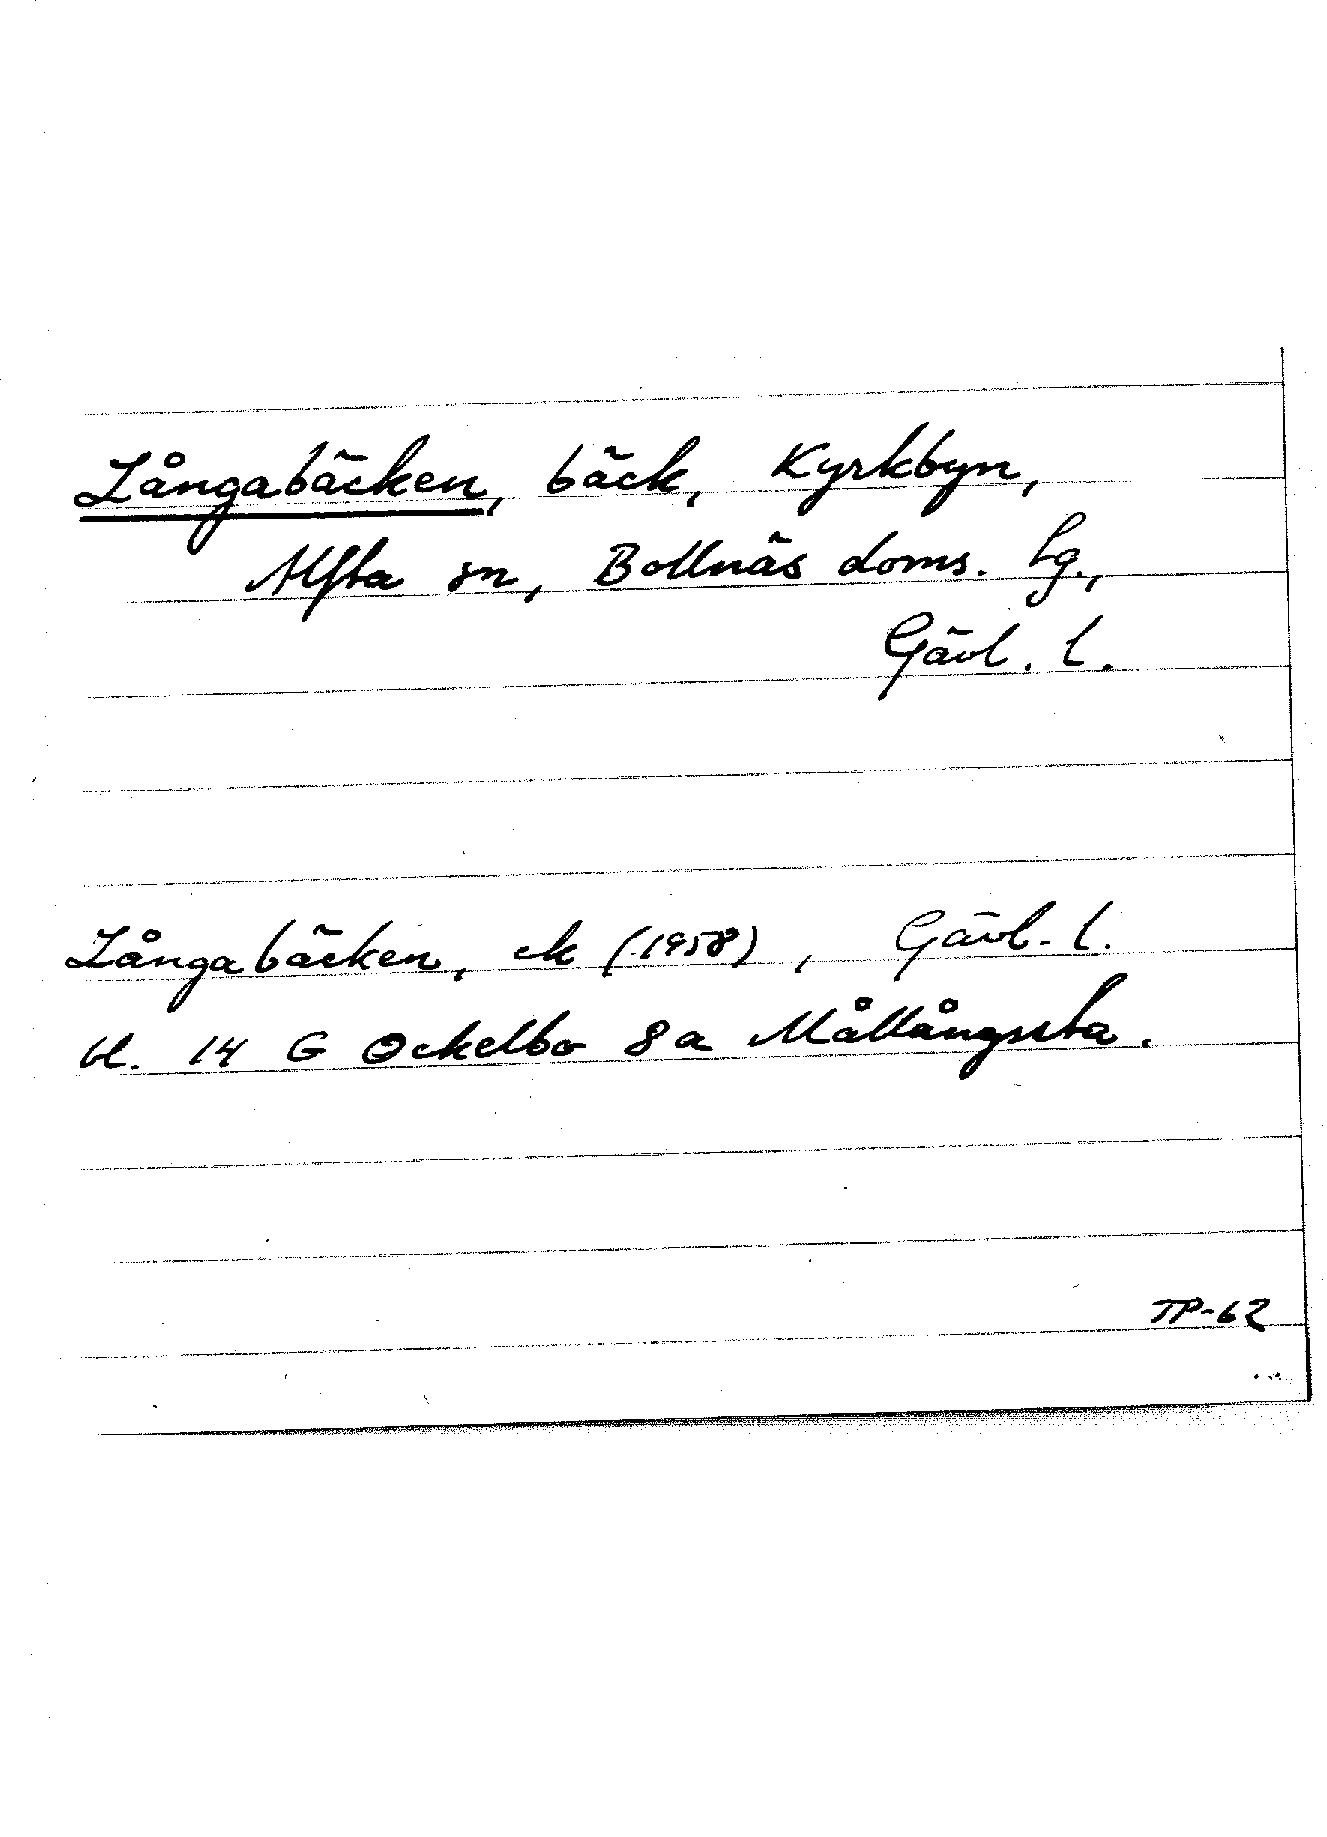 Långabäcken, bäck, Kyrkbyn,
Alfta sn, Bollnäs doms. tg.,
Gävl. l.
Långabäcken, ek (1958), Gävl. l.
bl. 14 G Ockelbo 8a Mållångssta.
TP-62